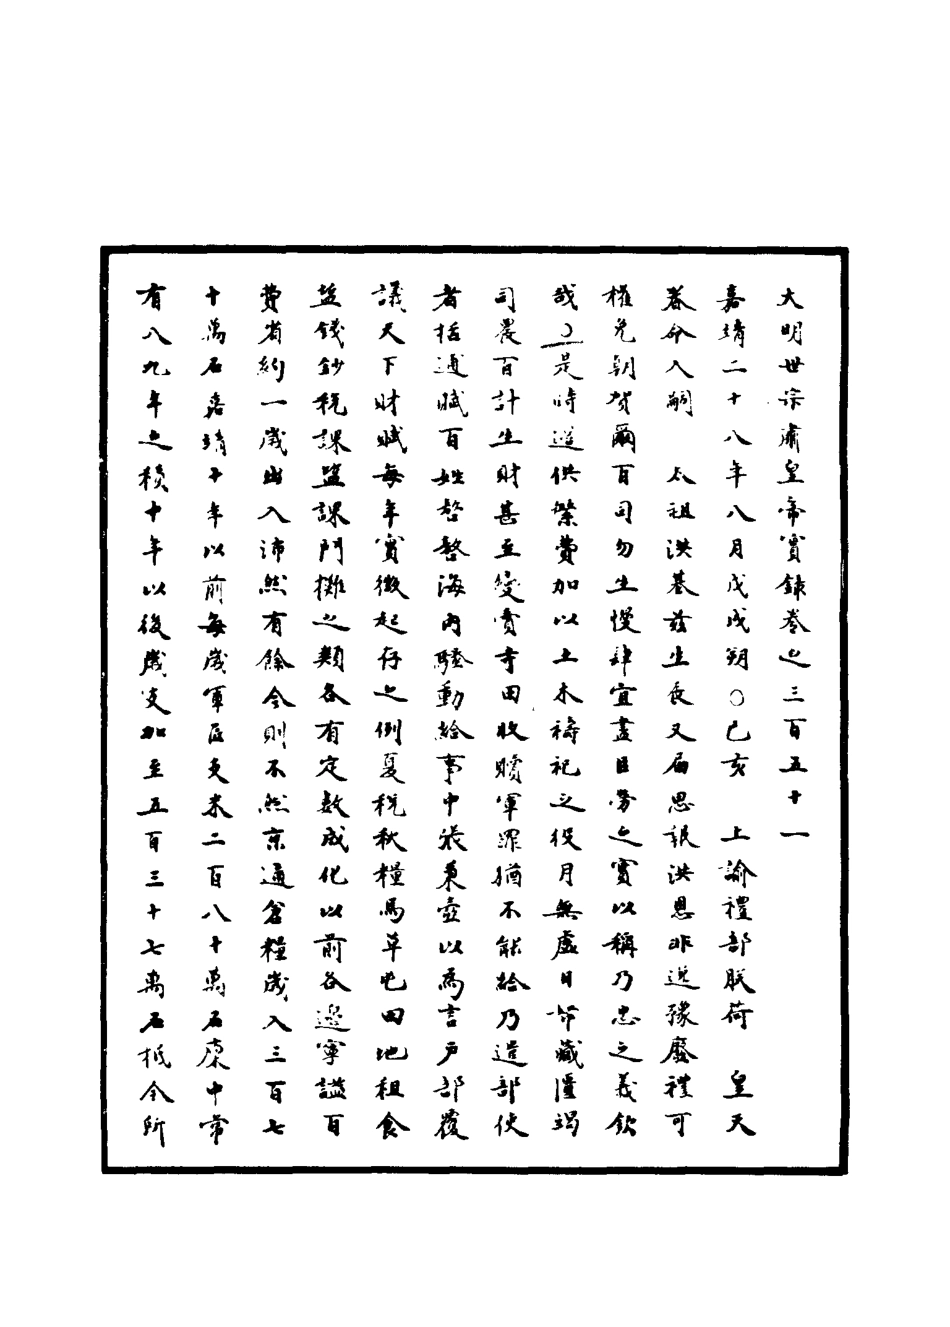 大明世宗肅皇帝實錄卷之三百五十一
嘉靖二十八年八月戊戌朔○己亥　上諭禮部朕荷　皇天
眷命入嗣　太祖洪基茲生辰又届思報洪恩非逆豫廢禮可
權免朝賀爾百司勿生慢肆宜盡臣勞之實以稱乃忠之義欽
哉○是時邊供繁費加以土木禱祀之役月無虛日帑藏匱竭
司農百計生財甚至變賣寺田收贖軍罪猶不能給乃遣部使
者括逋賦百姓嗸嗸海內騷動給事中張秉壺以為言戶部覆
議天下財賦每年實徵起存之例夏稅秋糧馬草屯田地租食
鹽錢鈔稅課鹽課門攤之類各有定數成化以前各邊寧謐百
費省約一歲出入沛然有餘今則不然京通倉糧歲入三百七
十萬石嘉靖十年以前每歲軍匠支米二百八十萬石廩中常
有八九年之積十年以後歲支加至五百三十七萬石抵今所